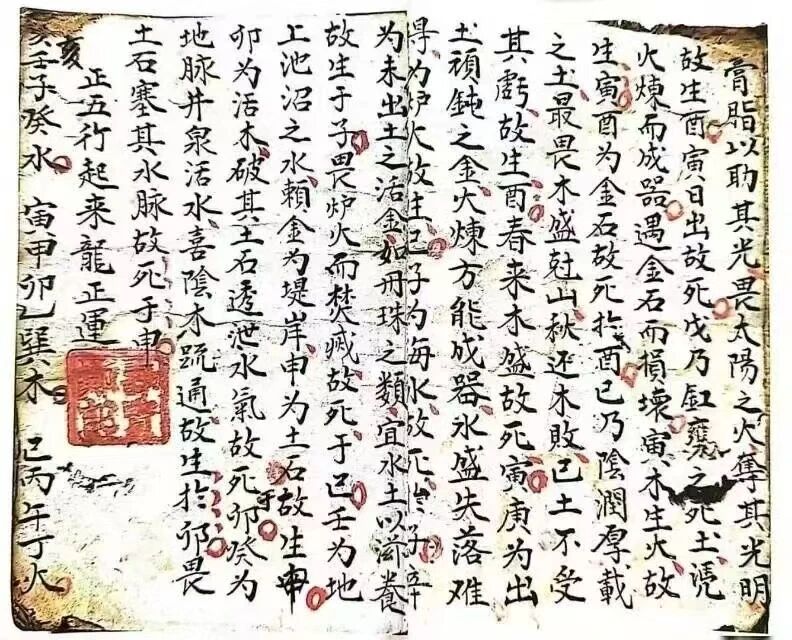 膏脂以助其光畏太陽之火奪其光明
故生酉寅日出故死戊乃缸甕之死土凴
火煉而成器遇金石而損壞寅木生火故
生寅酉为金石故死於酉已乃陰潤厚載
之土最畏木盛尅山秋还木敗已土不受
其虧故生酉春来木盛故死寅庚为出
土頑鈍之金火煉方能成器水盛失落难
为炉火故生巳子为海水故死子辛
为未出土之活金如丹珠之類宜水土以滋養
故生于子畏炉火而焚滅故死于已壬为地
上池沼之水賴金为堤岸申为土石故生申
卯为活木破其土石透泄水氣故死于卯癸为
地脉井泉活水喜陰木疏通故生於卯畏
土石塞其水脉故死于申
正五行起来龍正運
亥壬子癸水 寅甲卯乙巽木 已丙午丁火